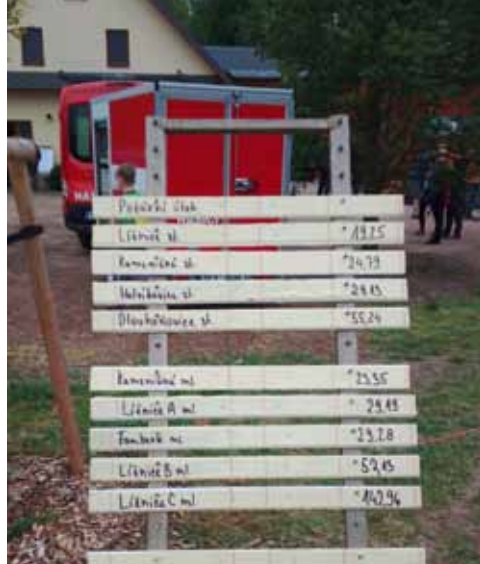 Požární útok
Líšnice st. 19,25
Kameničná st. 24,79
st. 29,13
Dlouhoňovice st. 55,24
Kameničná ml. 23,95
Líšnice A ml. 29,19
Žamberk ml. 29,28
Líšnice B ml. 57,13
Líšnice C ml. 142,96
HA